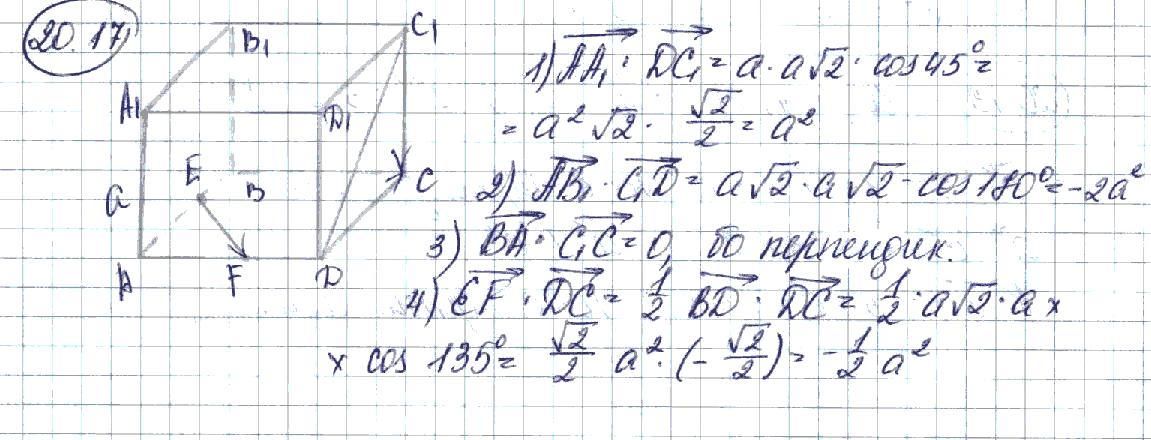 20.17
B₁
C₁
A₁
D₁
E
B
C
a
A
F
D
1) AA₁ · DC₁ = a · a√2 · cos 45° =
= a²√2 · √2/2 = a²
2) AB₁ · C₁D = a√2 · a√2 · cos 180° = -2a²
3) BA · C₁C = 0, бо перпендик.
4) EF · DC = 1/2 BD · DC = 1/2 · a√2 · a ×
× cos 135° = √2/2 a² · (-√2/2) = -1/2 a²